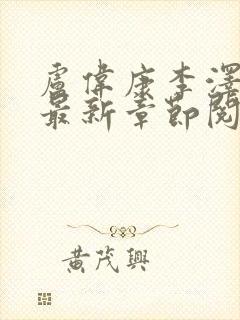 盧偉康李澤
最新章節閱
黃茂興